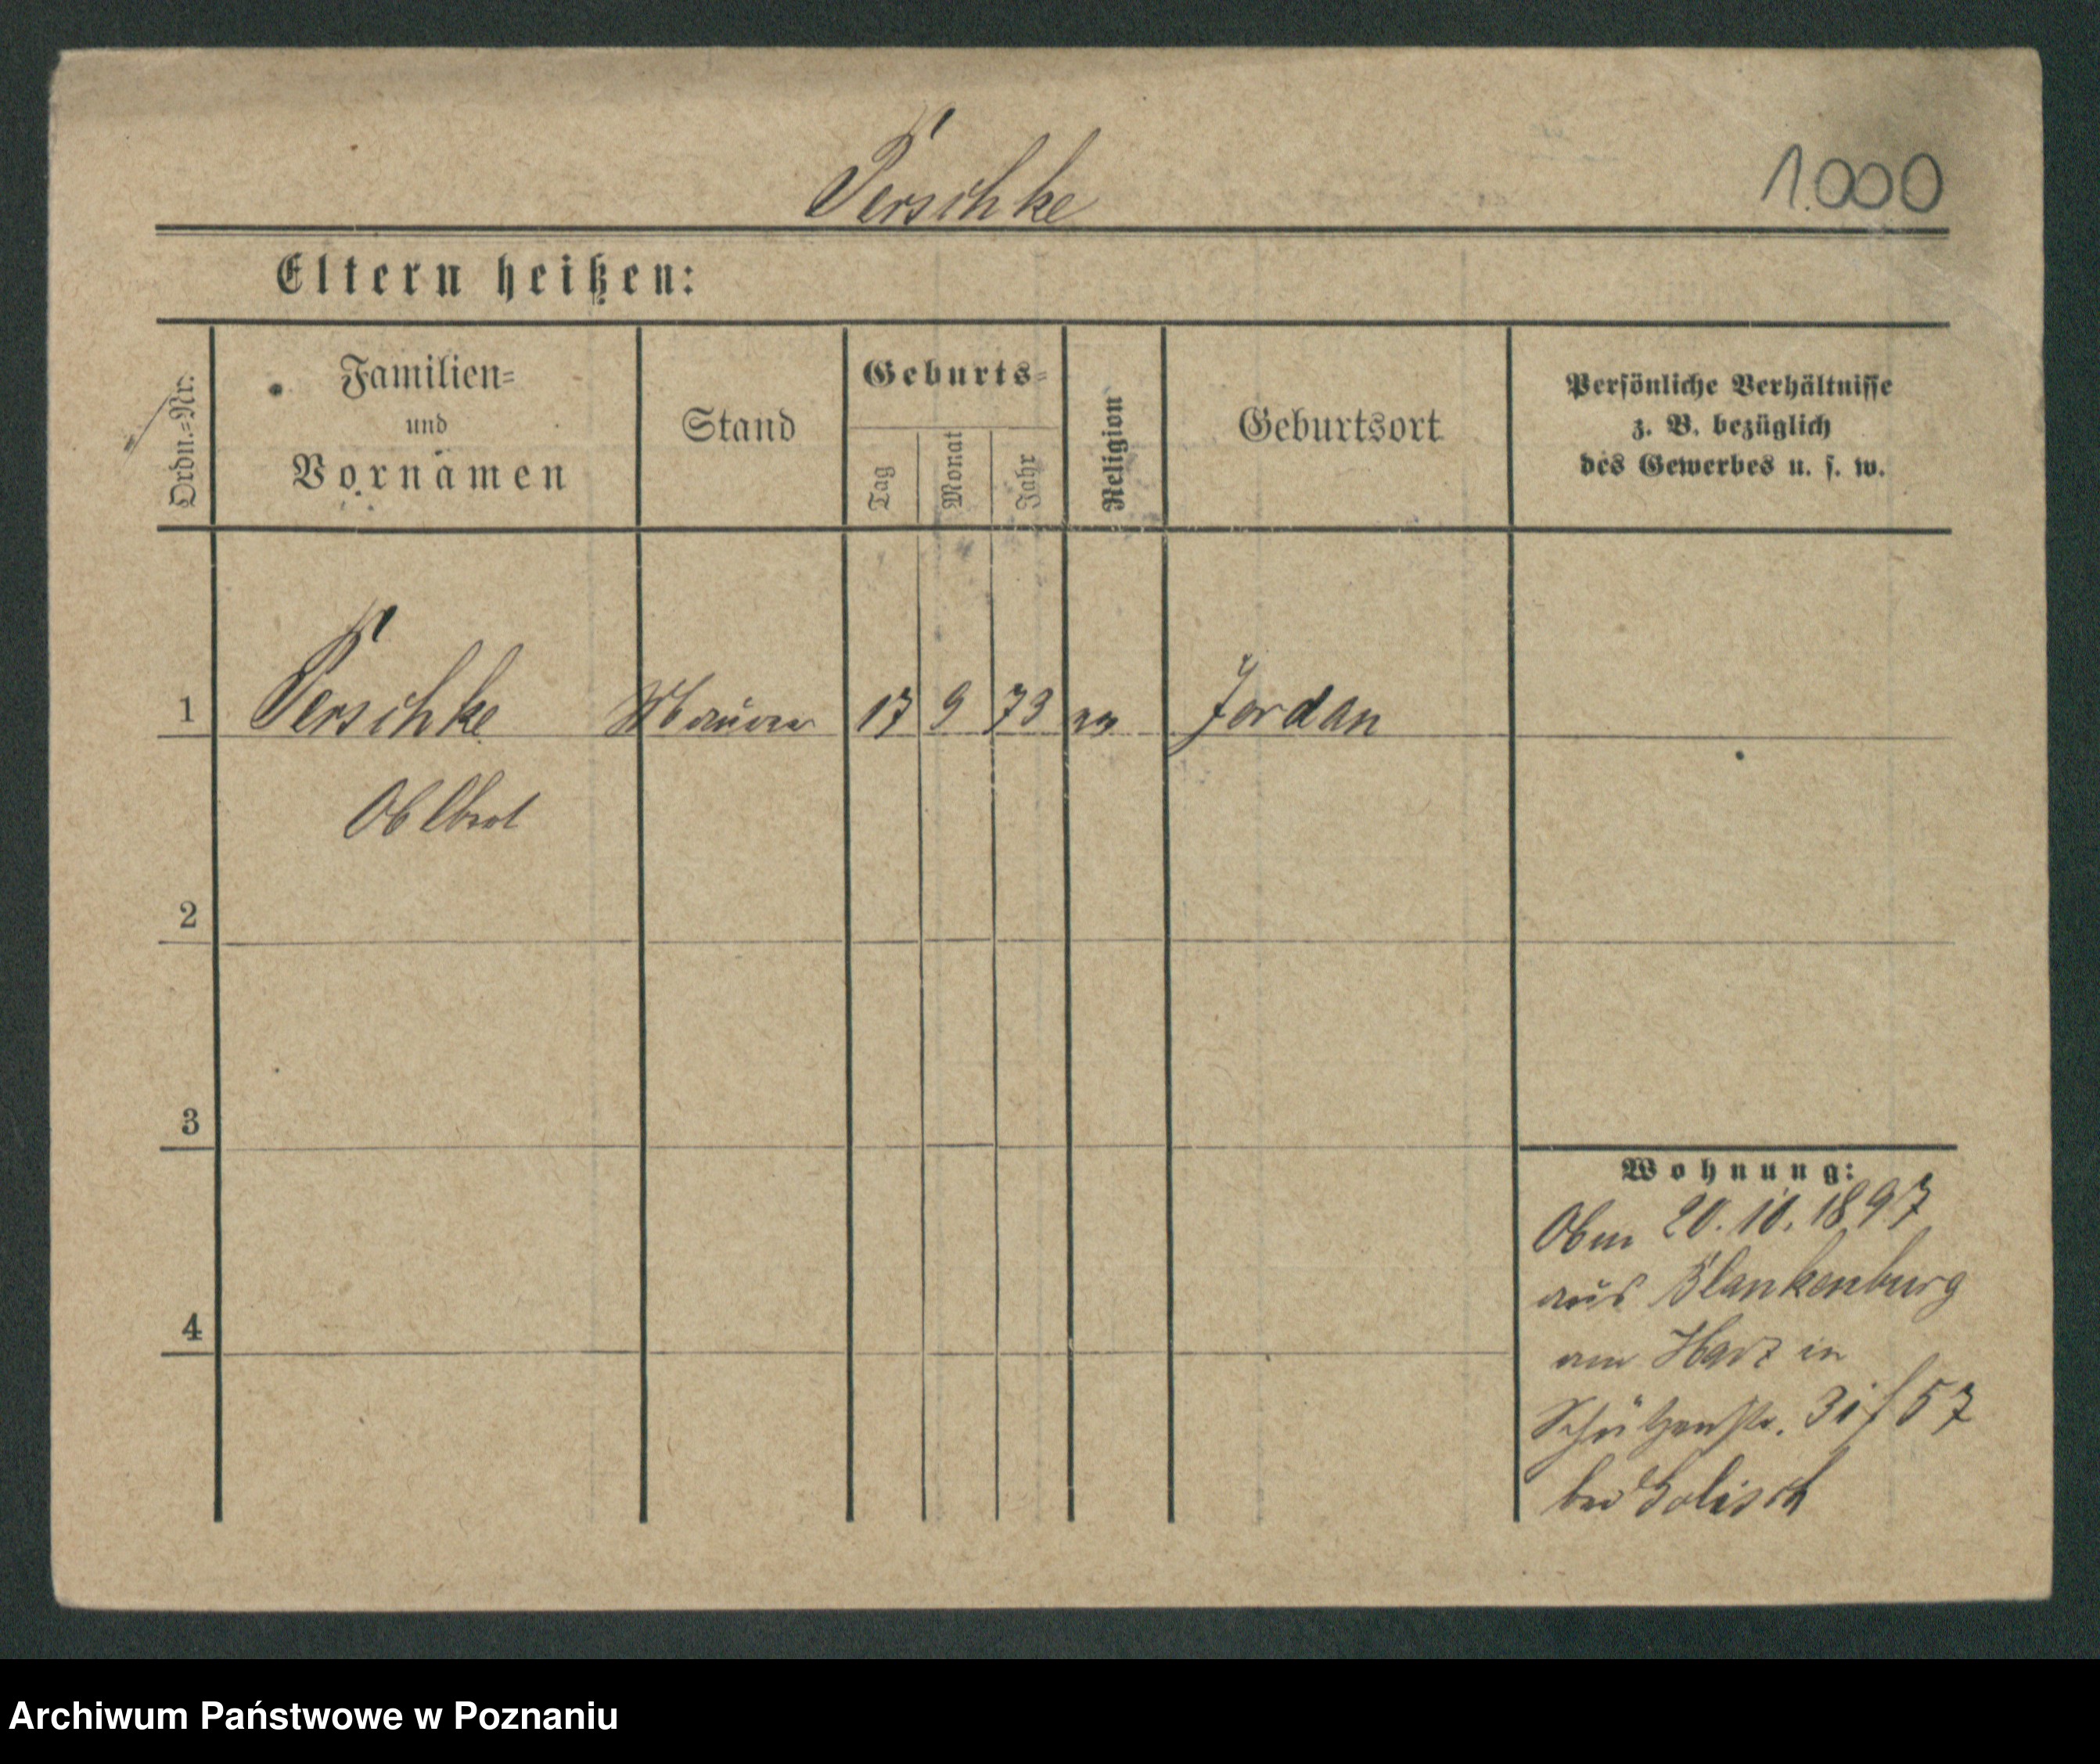 Perschke
1.000
Eltern heißen:
Ordn.=Nr.
Familien=
und
Vornamen
Stand
Geburts=
Tag
Monat
Jahr
Religion
Geburtsort
Persönliche Verhältnisse
z. B. bezüglich
des Gewerbes u. s. w.
1 Perschke Maurer 17 9 73 ev Jordan
2
3
4
Wohnung:
20.10.1897
aus Blankenburg
am Harz in
Schützenstr. 31/57
bei
Archiwum Państwowe w Poznaniu